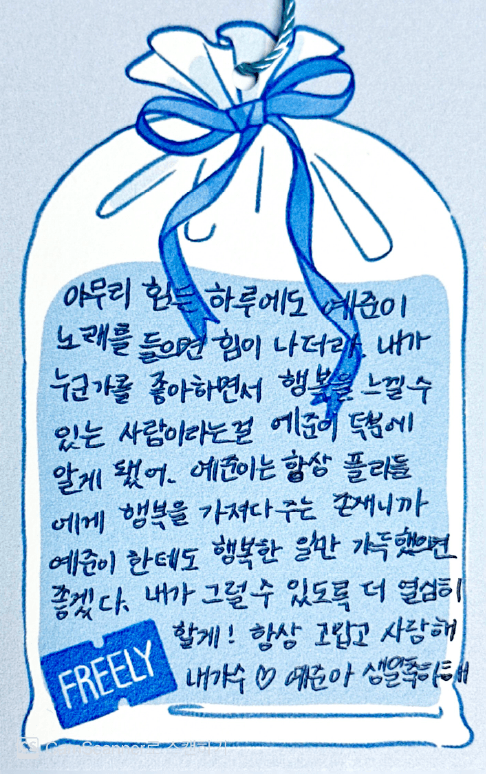 아무리 힘든 하루에도 예준이
노래를 들으면 힘이 나더라. 내가
누군가를 좋아하면서 행복을 느낄 수
있는 사람이라는걸 예준이 덕분에
알게 됐어. 예준이는 항상 플리들
에게 행복을 가져다 주는 존재니까
예준이 한테도 행복한 일만 가득했으면
좋겠다. 내가 그럴 수 있도록 더 열심히
할게! 항상 고맙고 사랑해
내가수 ♡ 예준아 생일축하해
FREELY